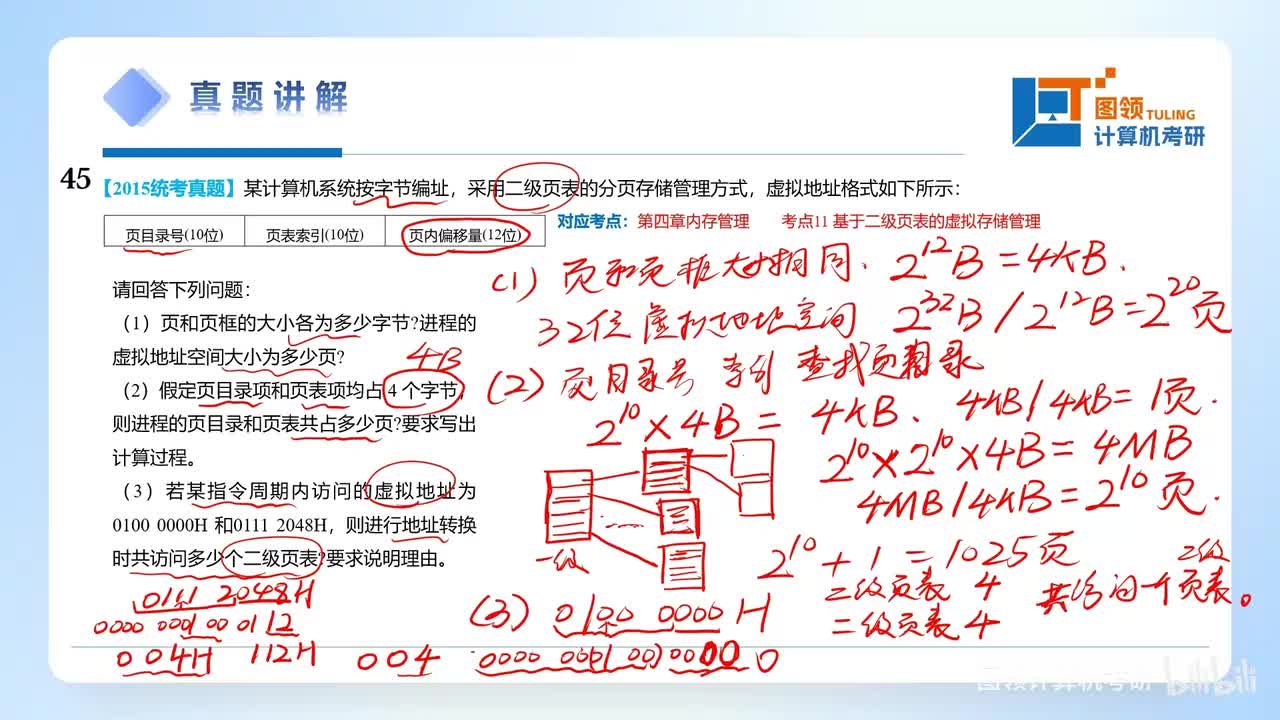 真题讲解
图领 TULING
计算机考研
45
【2015统考真题】某计算机系统按字节编址，采用二级页表的分页存储管理方式，虚拟地址格式如下所示：
页目录号(10位) 页表索引(10位) 页内偏移量(12位)
对应考点：第四章内存管理 考点11 基于二级页表的虚拟存储管理
请回答下列问题：
（1）页和页框的大小各为多少字节?进程的
虚拟地址空间大小为多少页?
（2）假定页目录项和页表项均占 4 个字节,
则进程的页目录和页表共占多少页?要求写出
计算过程。
（3）若某指令周期内访问的虚拟地址为
0100 0000H 和0111 2048H，则进行地址转换
时共访问多少个二级页表?要求说明理由。
4B
(1) 页和页框大小相同. 2^12B = 4KB.
32位 虚拟地址空间 2^32B / 2^12B = 2^20页
(2) 页目录号 索引 查找页目录
2^10 × 4B = 4KB. 4KB/4KB = 1页.
2^10 × 2^10 × 4B = 4MB
4MB/4KB = 2^10页.
一级
2^10 + 1 = 1025页
二级页表 4 共访问一个页表。
二级
二级页表 4
(3) 0100 0000H
0111 2048H
0000 0001 00 0112
004H 112H 004
图领计算机考研 bilibili